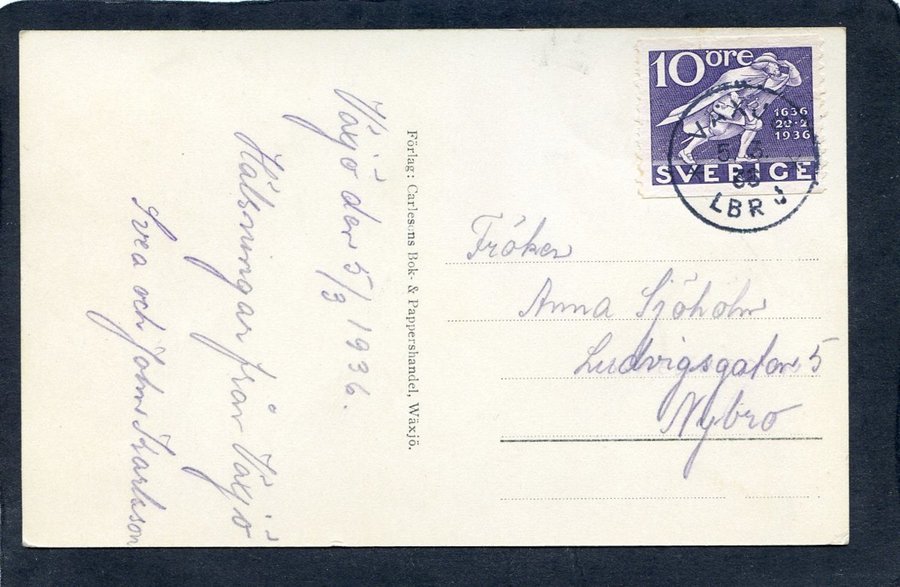 Växjö den 5/3 1936.
Hälsningar från Växjö
Svea och John Karlsson
Förlag: Carlesons Bok- & Pappershandel, Wäxjö.
10 öre
1636
20-2
1936
SVERIGE
VÄXJÖ
5 3
36
LBR J
Fröken
Anna Sjöholm
Ludvigsgatan 5
Nybro